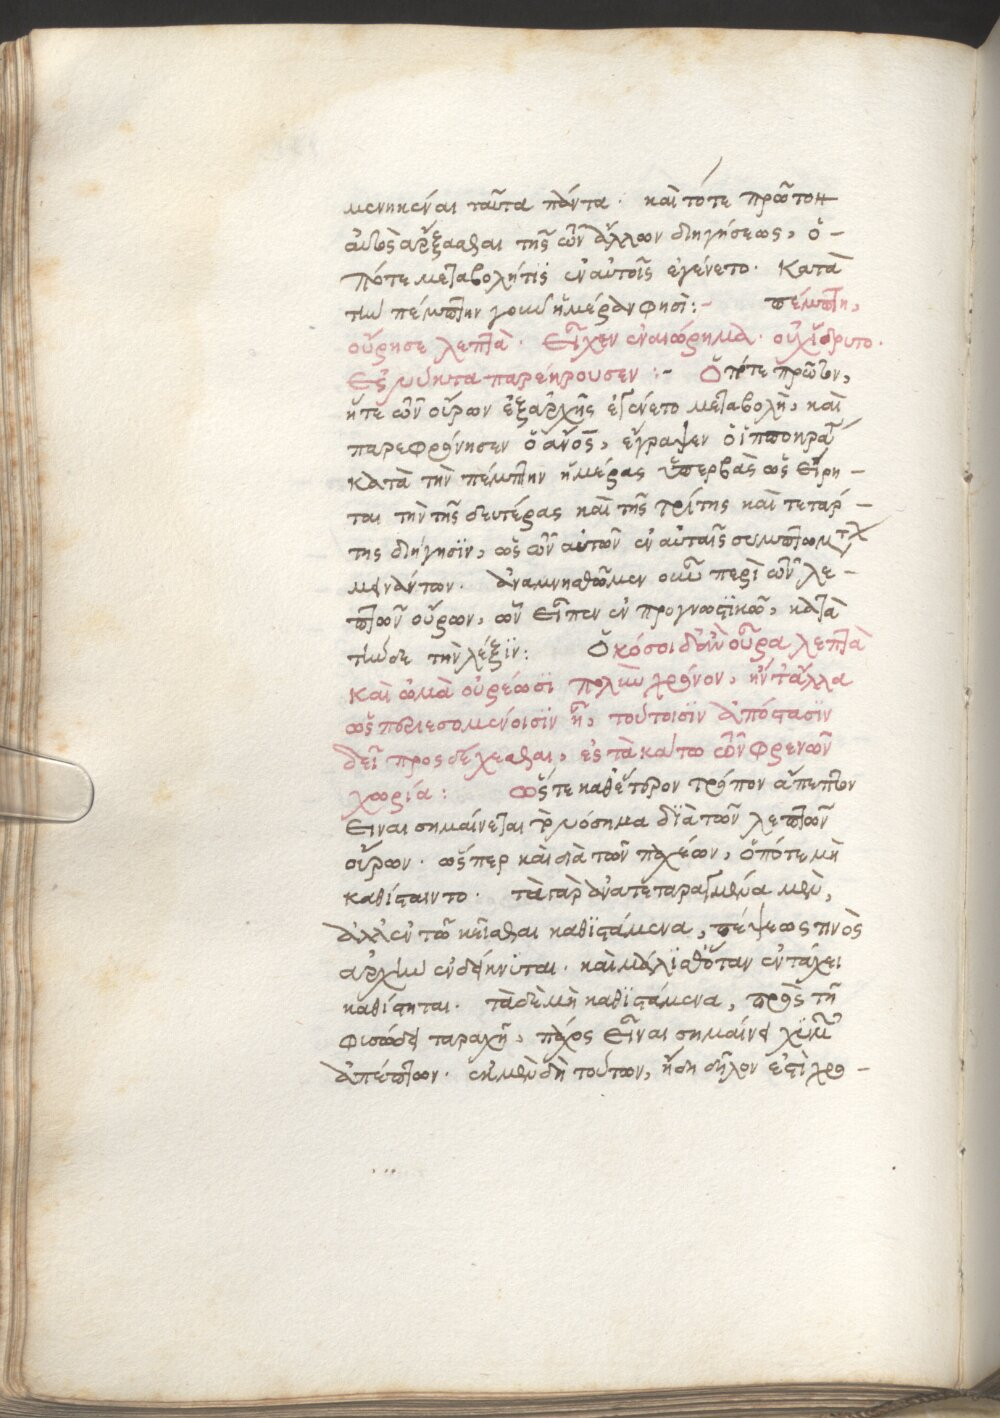 μενηκέναι ταῦτα πάντα· καὶ τότε πρῶτον
αὐτὸς ἄρξασθαι τῆς τῶν ἄλλων διηγήσεως, ὁ-
πότε μεταβολή τις ἐν αὐτοῖς ἐγένετο. Κατὰ
τὴν πέμπτην γοῦν ἡμέραν φησί:- πέμπτῃ,
οὔρησε λεπτά· Εἶχεν ἐναιώρημα· οὐχ ἵδρυτο·
Ἐς νύκτα παρέκρουσεν:- Ὅτε πρῶτον,
ἥτε τῶν οὔρων ἐξαρχῆς ἐγένετο μεταβολὴ, καὶ
παρεφρόνησεν ὁ ἄνος, ἔγραψεν ὁ ἱπποκρα
κατὰ τὴν πέμπτην ἡμέρας ὑπερβὰς ὡς εἴρη-
ται τὴν τῆς δευτέρας καὶ τῆς τρίτης καὶ τετάρ-
της διήγησιν, ὡς τῶν αὐτῶν ἐν αὐταῖς συμπτωμτ
μενάντων. ἀναμνησθῶμεν οὖν περὶ τῶν λε-
πτῶν οὔρων, ὧν εἶπεν ἐν προγνωστικῶ, κατὰ
τήνδε τὴν λέξιν: Ὁκόσοι δ' ἂν οὖρα λεπτὰ
καὶ ὠμὰ οὐρέωσι πολὺν χρόνον, ἢν τἄλλα
ὡς περιεσομένοισιν ᾖ, τούτοισιν ἀπόστασιν
δεῖ προσδέχεσθαι, ἐς τὰ κάτω τῶν φρενῶν
χωρία: ὥστε καθ' ἕτερον τρόπον ἄπεπτον
εἶναι σημαίνεται τὸ νόσημα διὰ τῶν λεπτῶν
οὔρων· ὥσπερ καὶ διὰ τῶν παχέων, ὁπότε μὴ
καθίσταιντο· τὰ γὰρ ἀνατεταραγμένα μὲν,
ἀλλ' ἐν τῶ κεῖσθαι καθιστάμενα, πέψεως τινὸς
ἀρχὴν ἐνδείκνυται· καὶ μάλισθ' ὅταν ἐν τάχει
καθίστηται· τὰ δὲ μὴ καθιστάμενα, πρὸς τῇ
φυσώδει ταραχῇ, πάχος εἶναι σημαίνει χυμ
ἀπέπτων· ἐκ μὲν δὴ τούτων, ἤδη δῆλον ἐστὶ χρο-